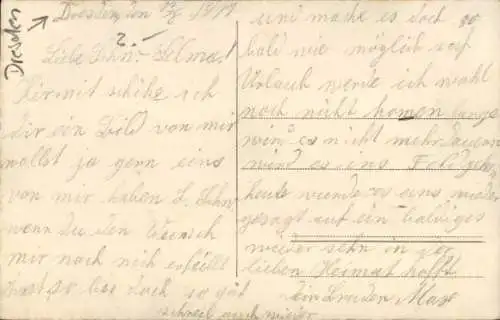 Dresden
Dresden, den
Liebe Schw. Selma!
Hirmit schike ich
dir ein Bild von mir
wollst ja gern eins
von mir haben L. Schw
wenn du den Wunsch
mir noch nich erfüllt
hast, so bes doch so gut
schreib auch wieder
und mache es doch so
bald wie möglich auf
Urlaub werde ich wohl
noch nicht komen lange
wird es nicht mehr dauern
wird es ins Feld gehn
heute wurde es uns wieder
gesagt auf ein baldiges
wieder sehn in der
lieben Heimat hofft
dein Bruder Max